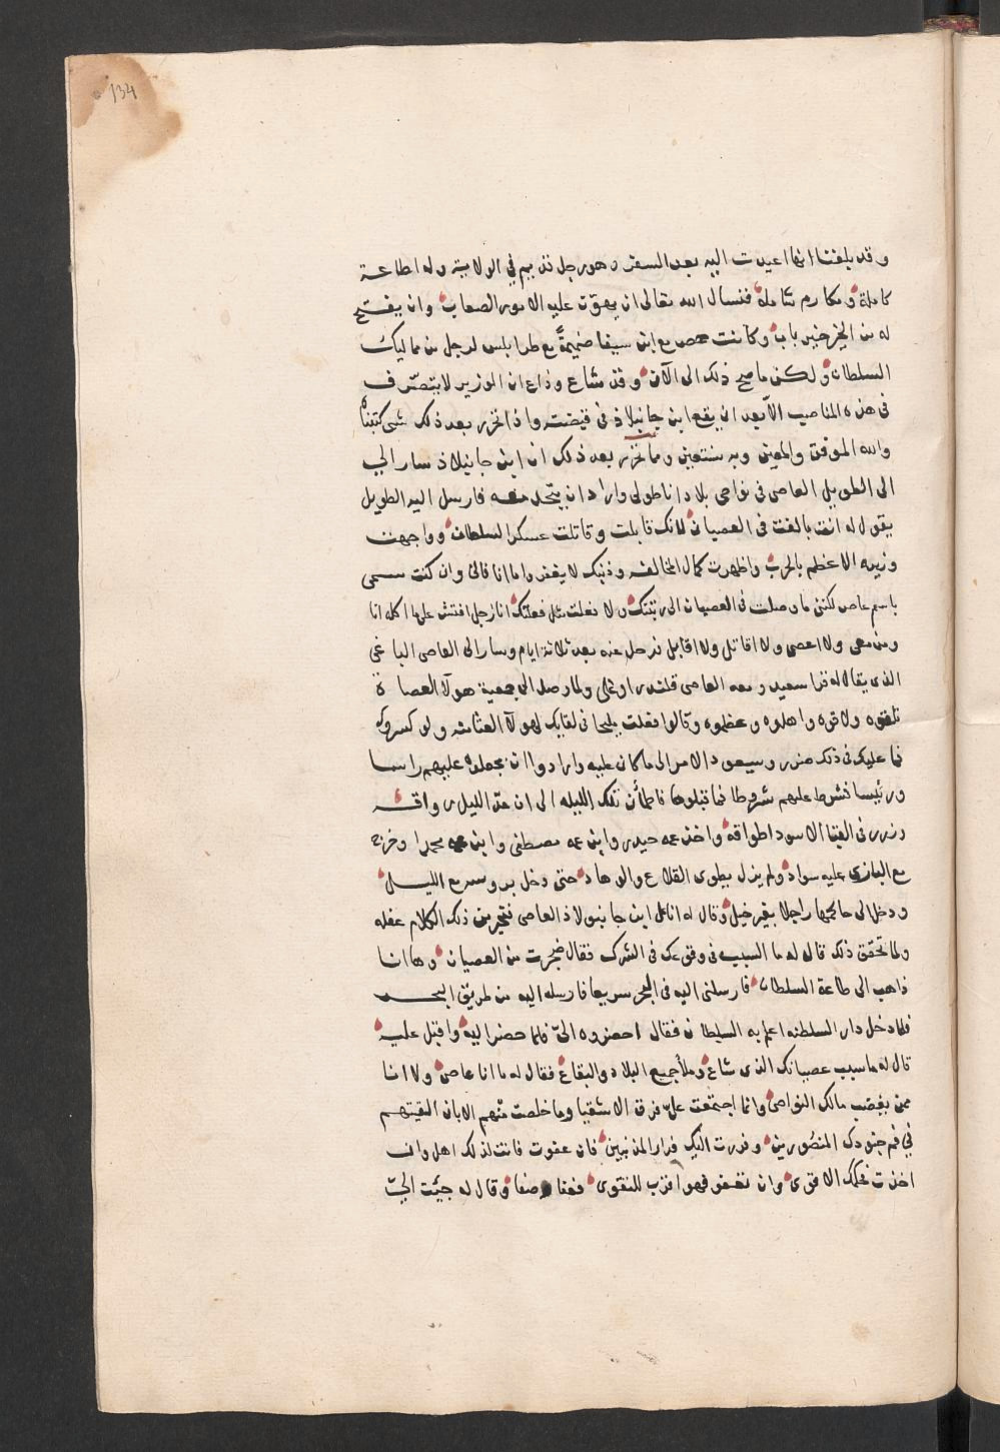 134
وقد بلغنا انها اعيدت اليه بعد السفر وهو رجل قديم في الولاية وله اطاعة
كاملة ومكارم شاملة فنسال الله تعالى ان يهوّن عليه الامور الصعاب وان يفتح
له من الخير خير باب وكانت حمص مع ابن سيفا ضميمةً مع طرابلس لرجل من مماليك
السلطان ولكن ما صح ذلك الى الآن وقد شاع وذاع ان الوزير لا يتصرف
في هذه المناصب الّا بعد ان يقع ابن جانبلاذ في قبضته واذا تحرر بعد ذلك شي كتبناه
والله الموفق والمعين وبه نستعين ومما تحرر بعد ذلك ان ابن جانبلاذ سار الي
الى الطويل العاصي في نواحي بلاد اناطولي واراد ان يتحد معه فارسل اليه الطويل
يقول له انت بالغت في العصيان لانك قابلت وقاتلت عسكر السلطان وواجهت
وزيره الاعظم بالحرب واظهرت كمال المخالفه وذنبك لا يغفر واما انا فاني وان كنت سمي
باسم عاص لكنني ما وصلت في العصيان الى رتبتك ولا فعلت مثل فعلتك انا رجل افتش على ما اكله انا
ومن معي ولا اعصي ولا اقاتل ولا اقابل فرحل عنه بعد ثلاثة ايام وسار الى العاصي الباغي
الذي يقال له قرا سعيد ومعه العاصي قلندر اوغلي ولما وصل الى جمعية هولآ العصاة
تلقوه ولاقوه واهلوه وعظموه وقالوا فعلت مليحا في لقايك لهولآ العثامنه ولو كسروك
فما عليك في ذلك ضرر وسيعود الامر الى ما كان عليه وارادوا ان يجعلوه عليهم راسا
ورئيسا فشرط عليهم شروطا فما قبلوها فاطمأن تلك الليله الى ان جن الليل رواقه
وزرر في الفضا الاسود اطواقه واخذ عمه حيدر وابن عمه مصطفى وابن عمه محمدا وخرج
مع البازي عليه سواد ولم يزل يطوي القلاع والوهاد حتى دخل بروسه مع الليل
ودخل الى حاكمها راجلا بغير خيل وقال له انا علي ابن جانبولاذ العاصي فتحير من ذلك الكلام عقله
ولما تحقق ذلك قال له ما السبب في وقوعك في الشرك فقال ضجرت من العصيان وها انا
ذاهب الى طاعة السلطان فارسلني اليه في البحر سريعا فارسله اليه من طريق البحر
فلما دخل دار السلطنه اعلم به السلطان فقال احضروه اليّ فلما حضر اليه واقبل عليه
قال له ما سبب عصيانك الذي شاع وملأ جميع البلاد والبقاع فقال له ما انا عاص ولا انا
ممن يغضب مالك النواصي وانما اجتمعت عليّ فرق الاشقيا وما خلصت منهم الا بان القيتهم
في فم جنودك المنصورين وفررت اليك فرار المذنبين فان عفوت فانت لذلك اهل وان
اخذت فحكمك الاقوى وان تعف فهو اقرب للتقوى فعفا وصفا وقال له جيئت اليّ